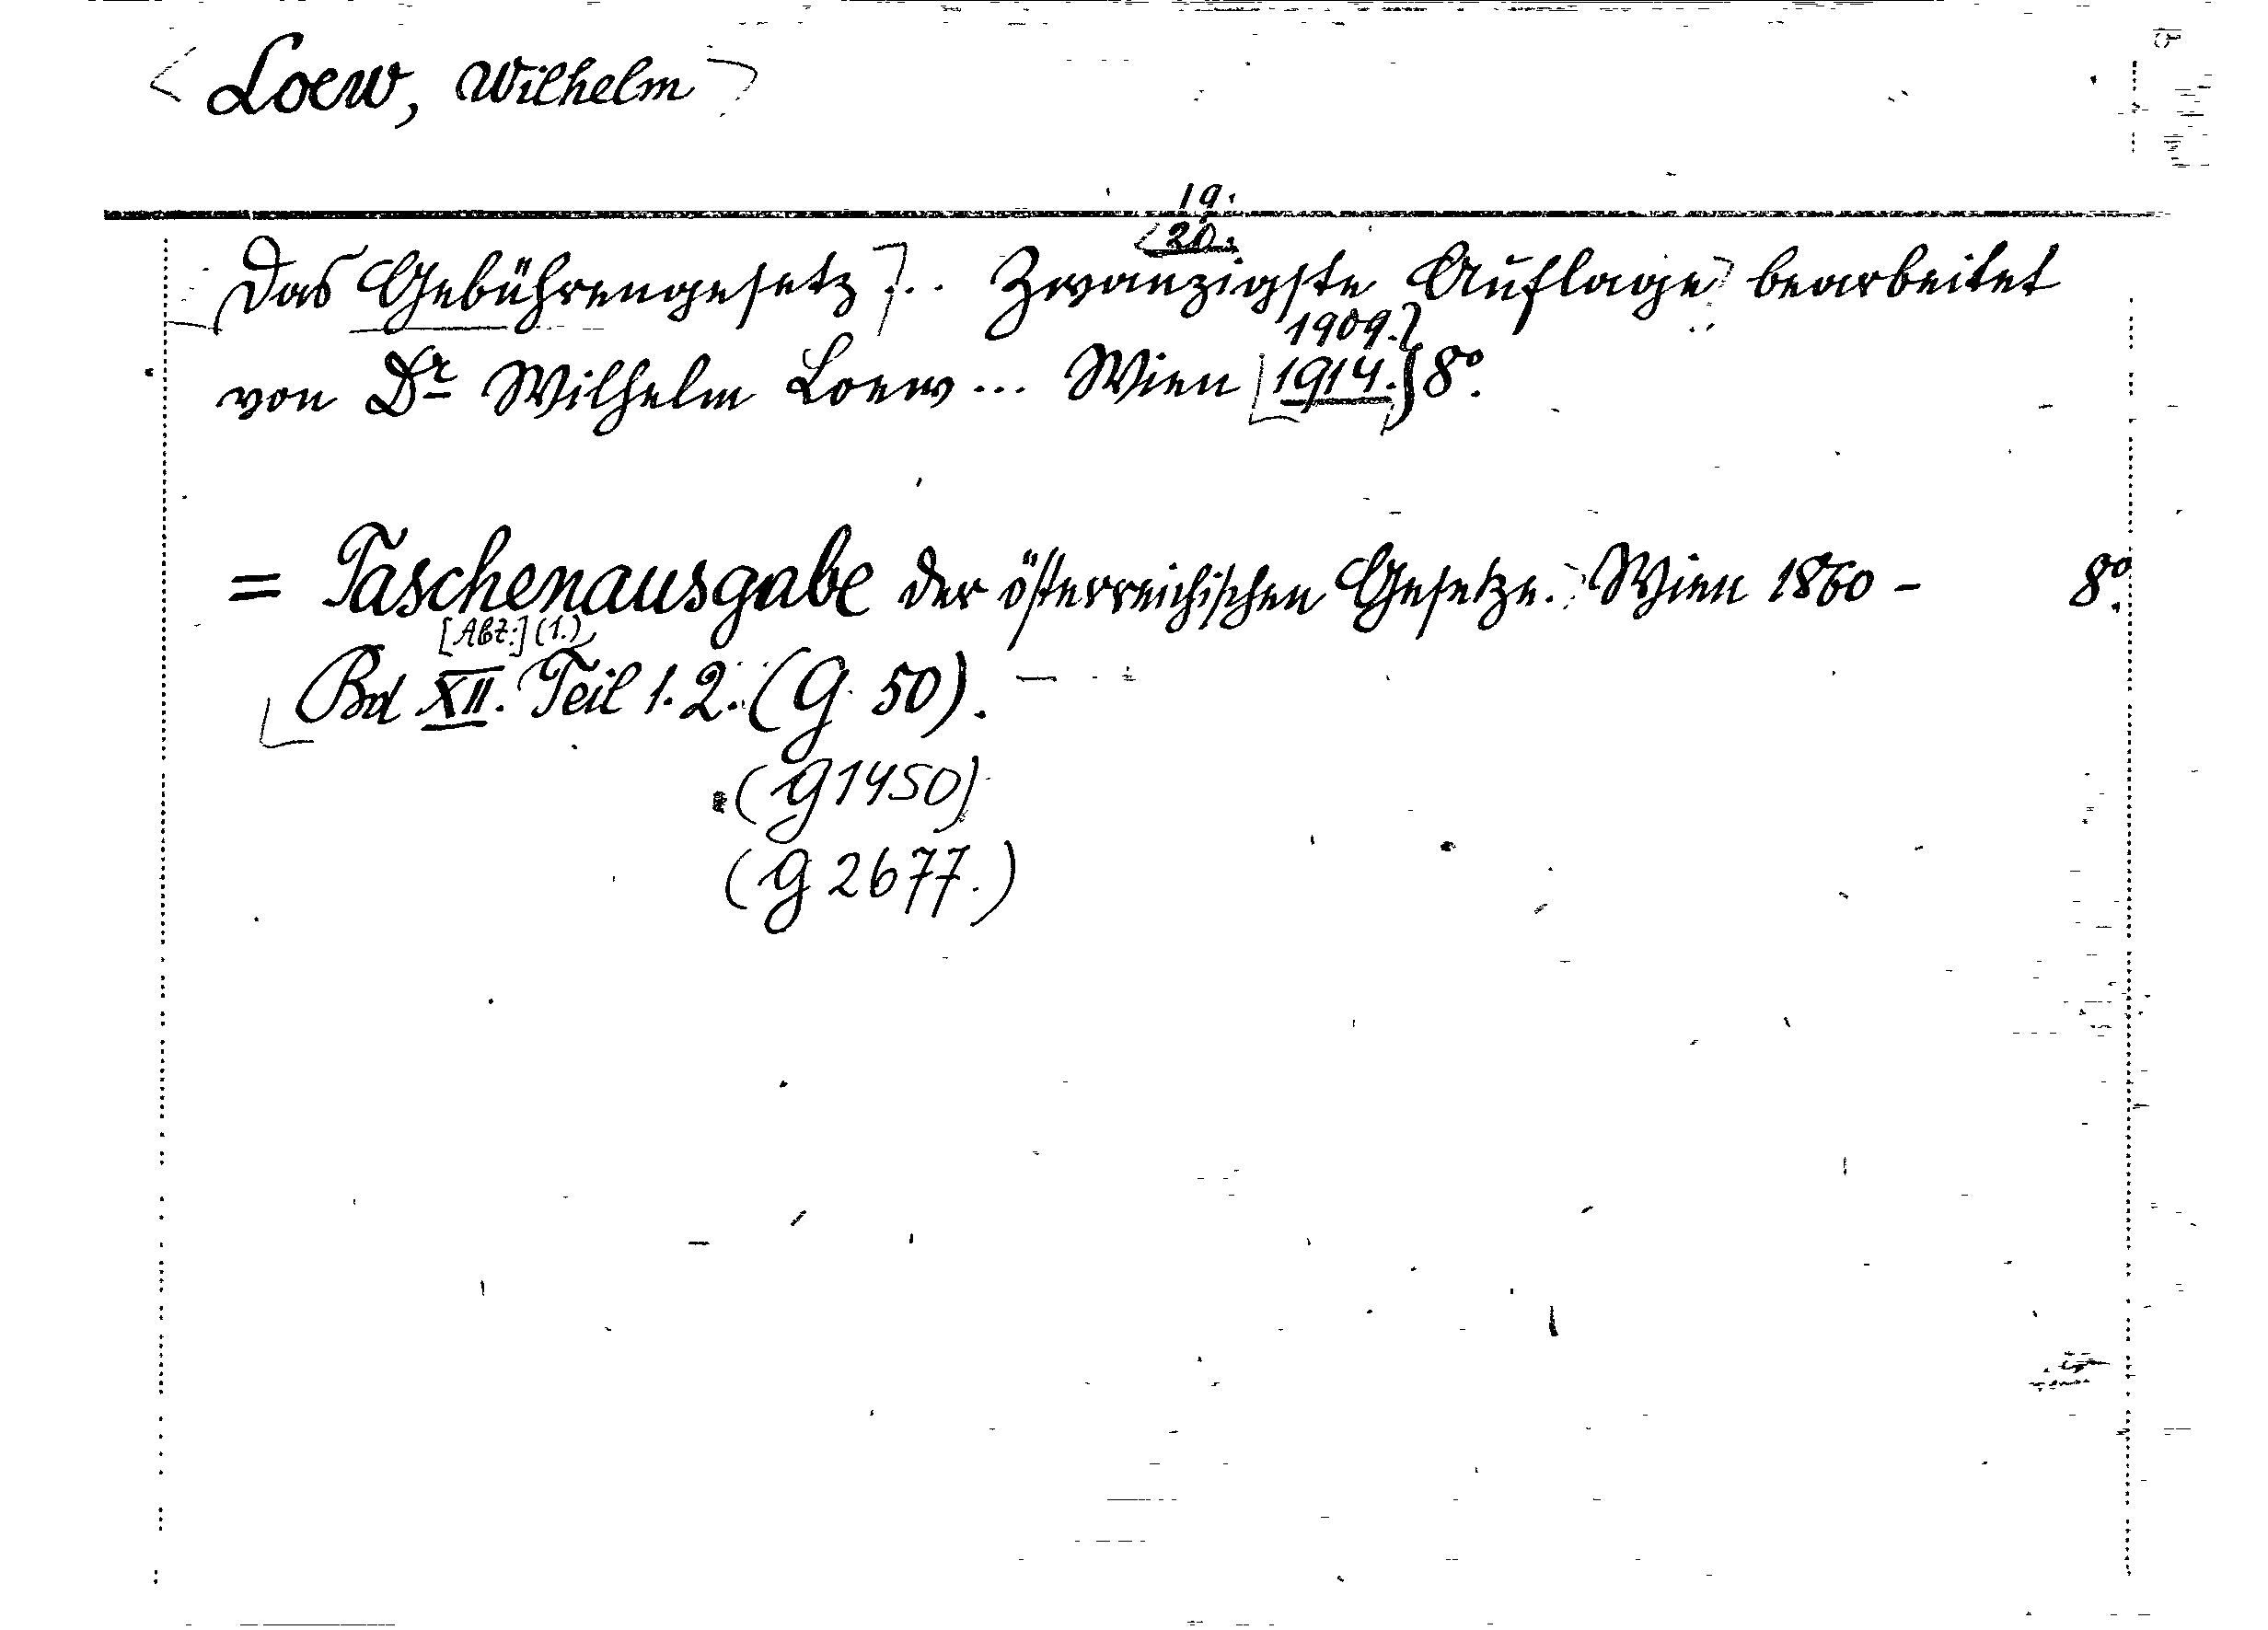 < Loew, Wilhelm >
19.
<20.
Das Gebührengesetz]... Zwanzigste Auflage bearbeitet
1909.}
von Dr Wilhelm Loew ... Wien [1914.} 8°.
= Taschenausgabe der österreichischen Gesetze. Wien 1860 - 8°.
[Abt:] (1.)
Bd XII. Teil 1.2. (G. 50).
(G 1450)
(G 2677.)